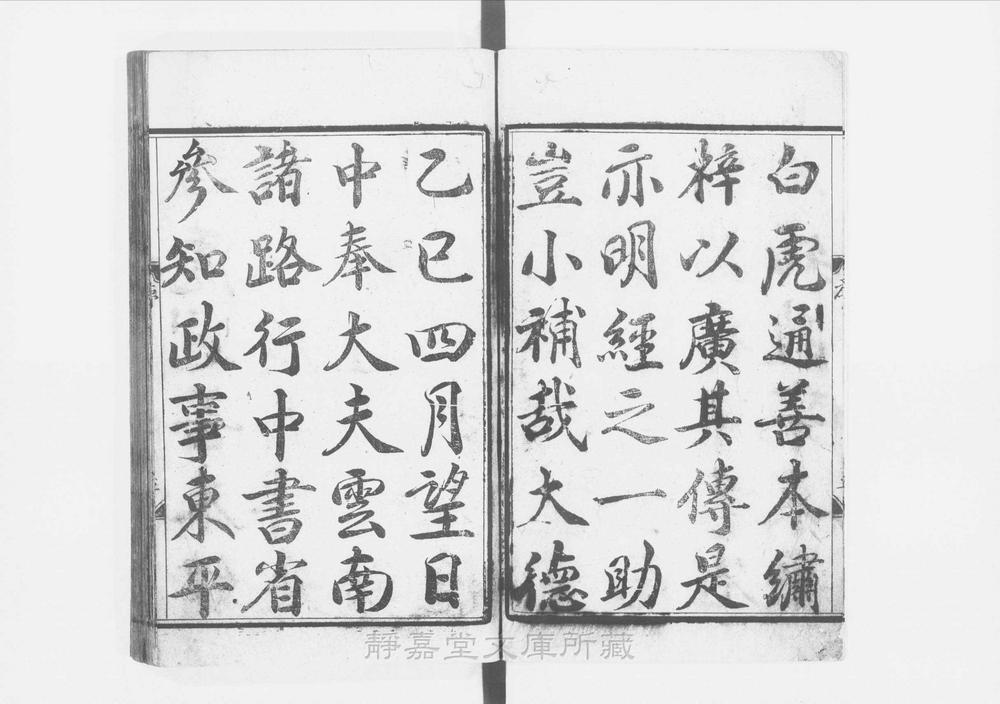 白虎通善本繡
梓以廣其傳是
亦明經之一助
豈小補哉大德
乙巳四月望日
中奉大夫雲南
諸路行中書省
參知政事東平
靜嘉堂文庫所藏